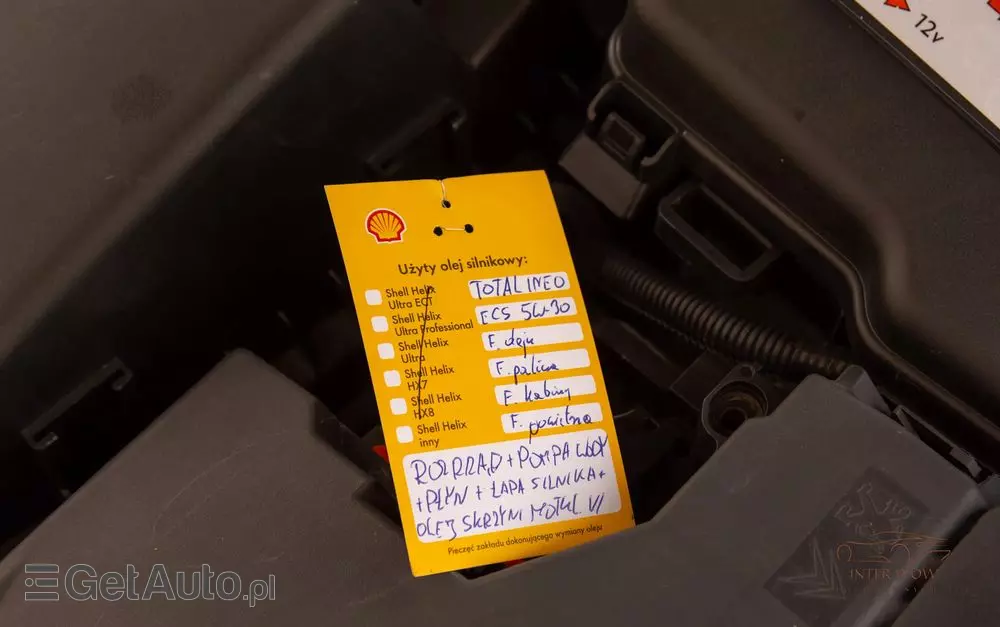 12v
Użyty olej silnikowy:
Shell Helix Ultra ECT
TOTAL INEO
Shell Helix Ultra Professional
ECS 5W-30
Shell Helix Ultra
F. oleju
Shell Helix HX7
F. paliwa
Shell Helix HX8
F. kabiny
Shell Helix inny
F. powietrza
ROZRZĄD + POMPA WODY
+ PŁYN + ŁAPA SILNIKA +
OLEJ SKRZYNI MOTUL VI
Pieczęć zakładu dokonującego wymiany oleju
GetAuto.pl